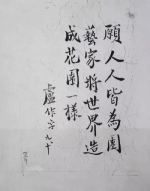 願人人皆為園
藝家將世界造
成花園一樣
盧作孚